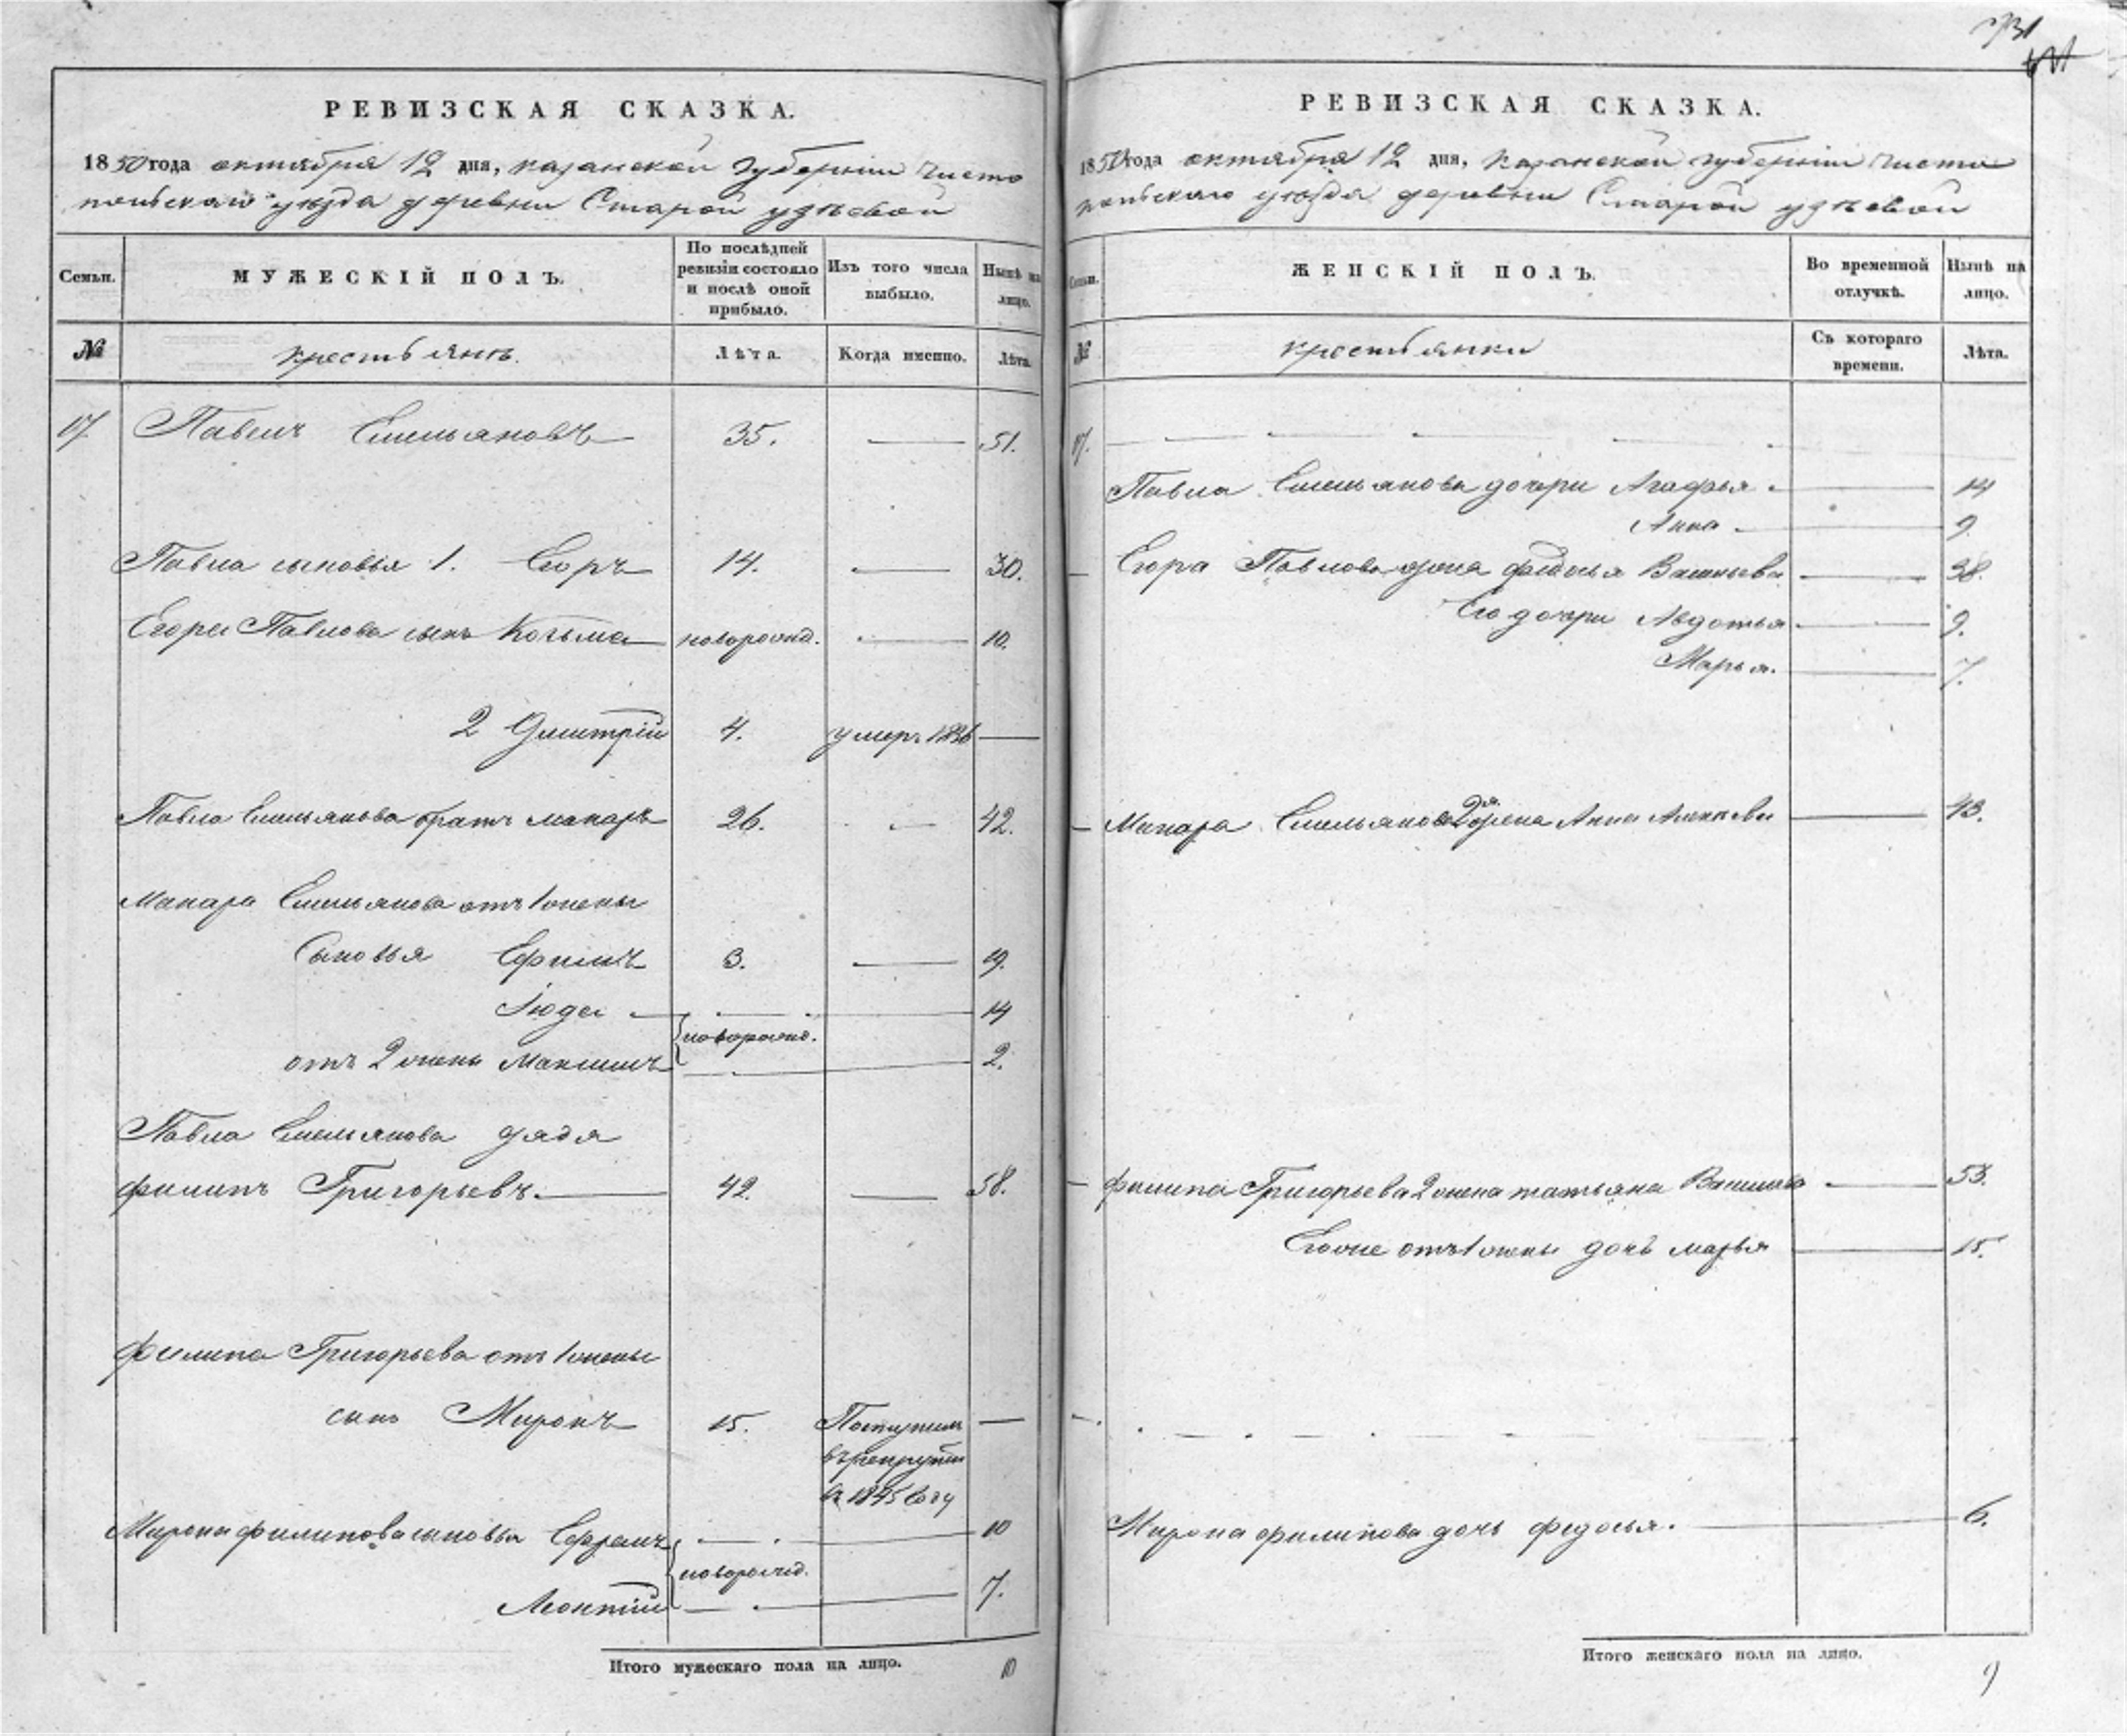 РЕВИЗСКАЯ СКАЗКА.
1850 года октября 12 дня, Казанской Губернiи Чисто
польскаго уѣзда деревни Старой Узѣевой
Семьи.
МУЖЕСКIЙ ПОЛЪ.
По послѣдней ревизiи состояло и послѣ оной прибыло.
Изъ того числа выбыло.
Нынѣ на лицо.
№
крестьянъ.
Лѣта.
Когда именно.
Лѣта.
17 Павелъ Емельяновъ 35. 51.
Павла сыновья 1. Егоръ 14. 30.
Егора Павлова сынъ Козьма новорожд. 10.
2 Дмитрiй 4. умеръ 1836
Павла Емельянова братъ Макаръ 26. 42.
Макара Емельянова отъ 1 жены
Сыновья Ефимъ 3. 19.
Iюда 14
новорожд.
отъ 2 жены Максимъ 2.
Павла Емельянова дядя
Филипъ Григорьевъ 42. 58.
Филипа Григорьева отъ 1 жены
сынъ Миронъ 15. Поступилъ
въ рекруты
в 1845 году
Мирона Филипова сыновья Ефремъ 10
новорожд.
Леонтiй 7.
Итого мужескаго пола на лицо. 10
731
РЕВИЗСКАЯ СКАЗКА.
1850 года октября 12 дня, Казанской Губернiи Чисто
польскаго уѣзда деревни Старой Узѣевой
Семьи.
ЖЕНСКIЙ ПОЛЪ.
Во временной отлучкѣ.
Нынѣ на лицо.
№
крестьянки
Съ котораго времени.
Лѣта.
17.
Павла Емельянова дочери Агафья 14
Анна 9.
Егора Павлова жена Федосья Васильева 38.
Его дочери Авдотья 9.
Марья. 7.
Макара Емельянова 2я жена Анна 43.
Филипа Григорьева 2 жена татьяна 53.
Егоже отъ 1 жены дочь марья 15.
Мирона Филипова дочь Федосья. 6.
Итого женскаго пола на лицо. 9